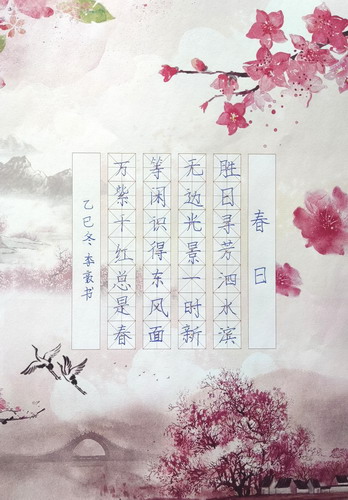 春日
胜日寻芳泗水滨
无边光景一时新
等闲识得东风面
万紫千红总是春
乙巳冬、李豪书